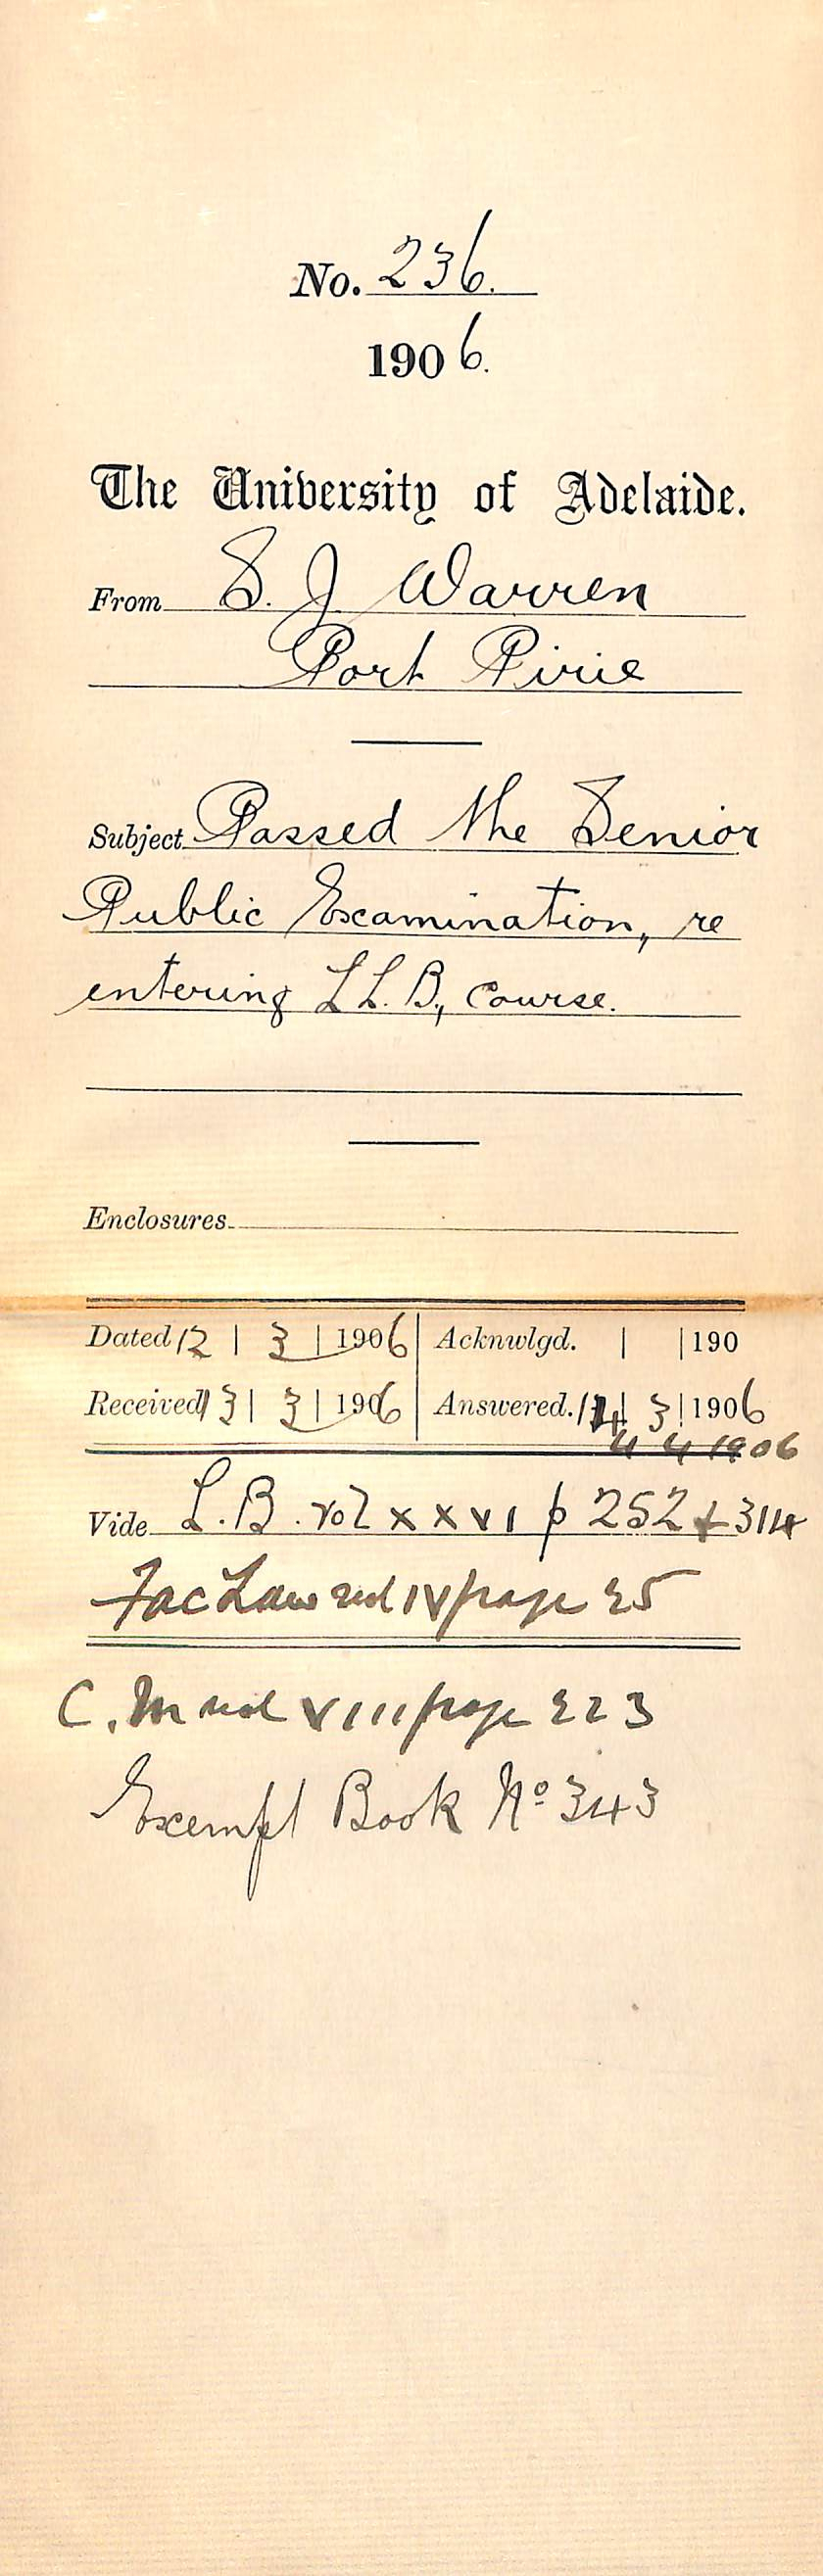 No. 236.
1906.
The University of Adelaide.
From S. J. Warren
Port Pirie
Subject Passed the Senior
Public Examination, re
entering LL.B, Course.
Enclosures
Dated 12 | 3 | 1906 Acknwlgd. | | 190
Received 13 | 3 | 1906 Answered. 14 | 3 | 1906
4 4 1906
Vide L.B. vol xxvi p 252 + 314
Fac Law vol IV page 25
C.M vol VIII page 223
Exempt Book No 343